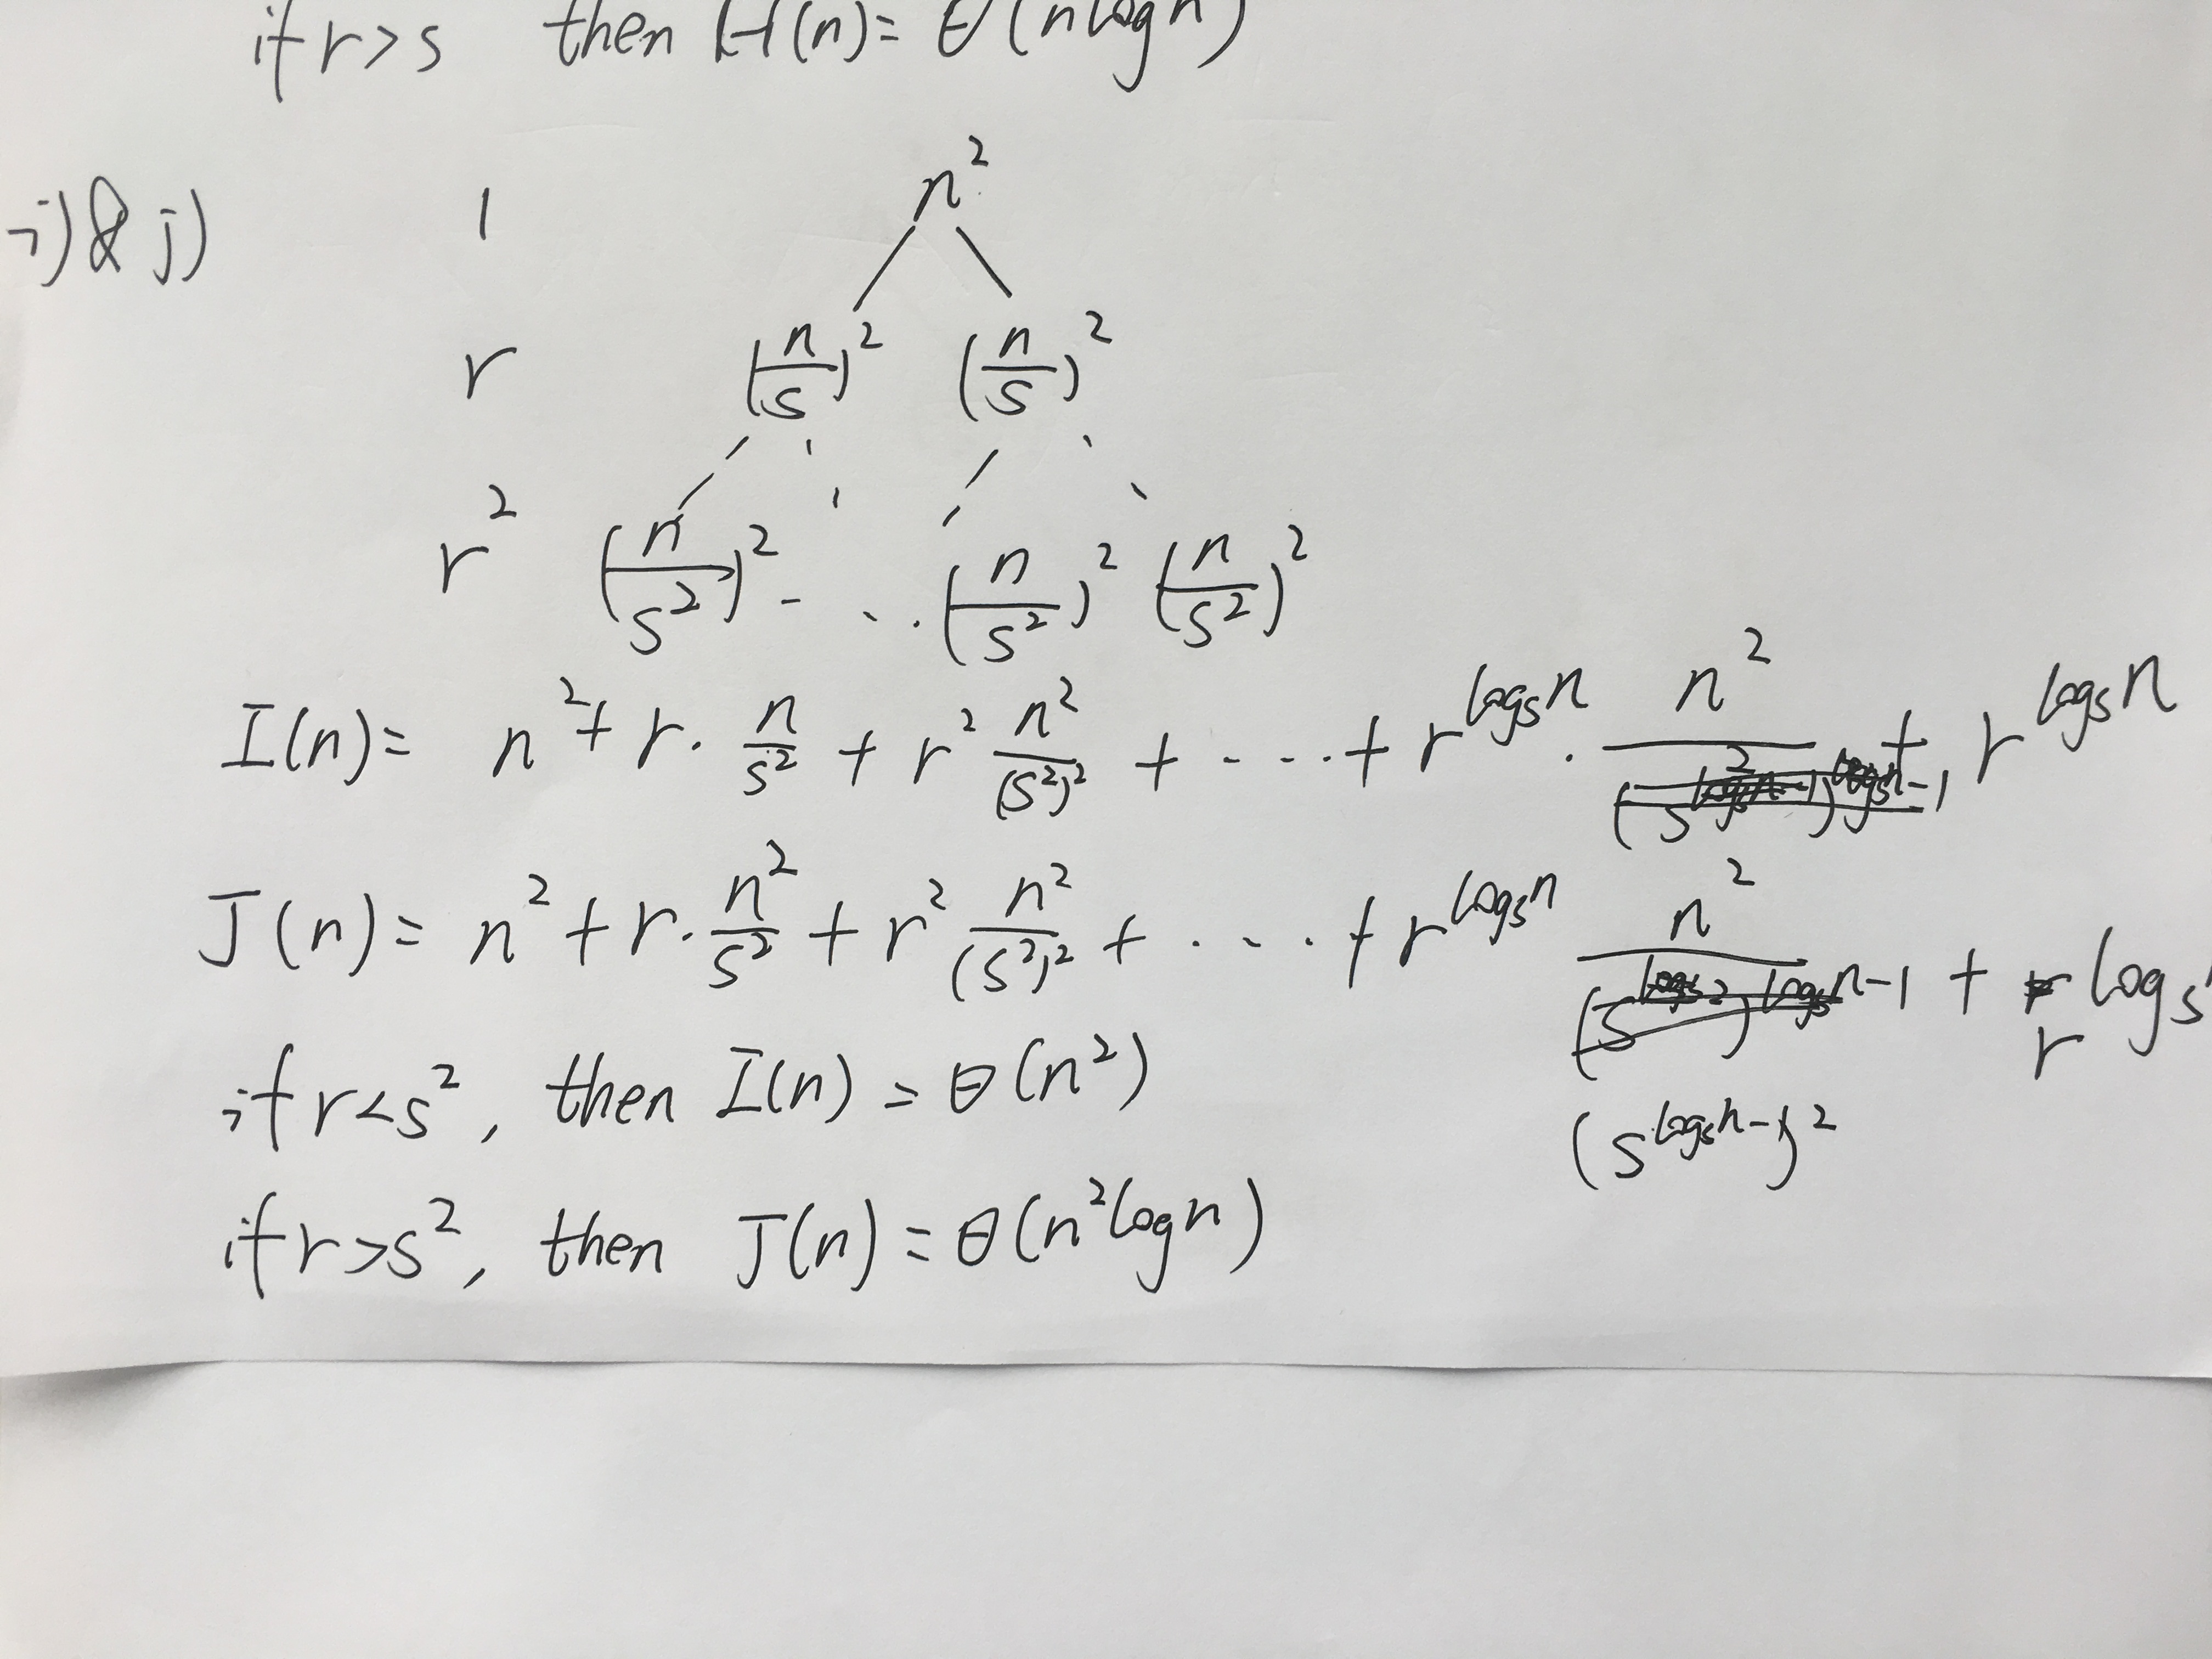 if r>s then H(n)= θ(nlogn)
i) & j)
1 n²
r (n/s)² (n/s)²
r² (n/s²)² - . . (n/s²)² (n/s²)²
I(n)= n² + r· n/s² + r² n²/(s²)² + - - . + r^logsn · n² + r^logsn
J(n) = n² + r· n²/s² + r² n²/(s²)² + . . . + r^logsn n²/(s^logsn-1)² + r^logs
if r<s², then I(n) = θ(n²)
if r>s², then J(n) = θ(n²logn)